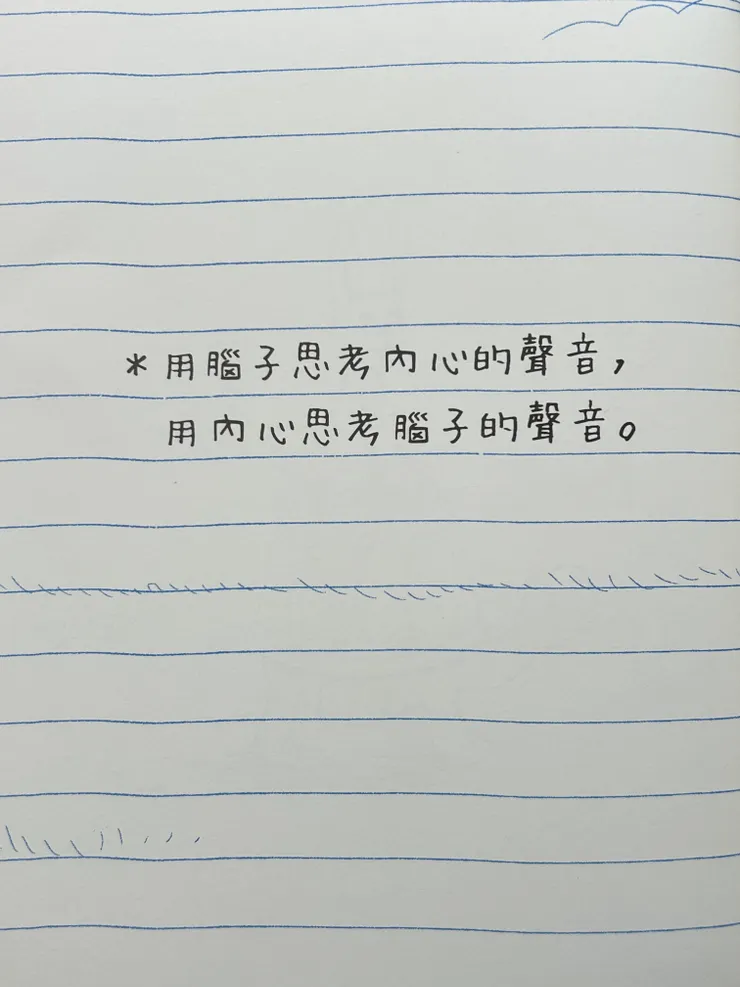 *用腦子思考內心的聲音,
用內心思考腦子的聲音。